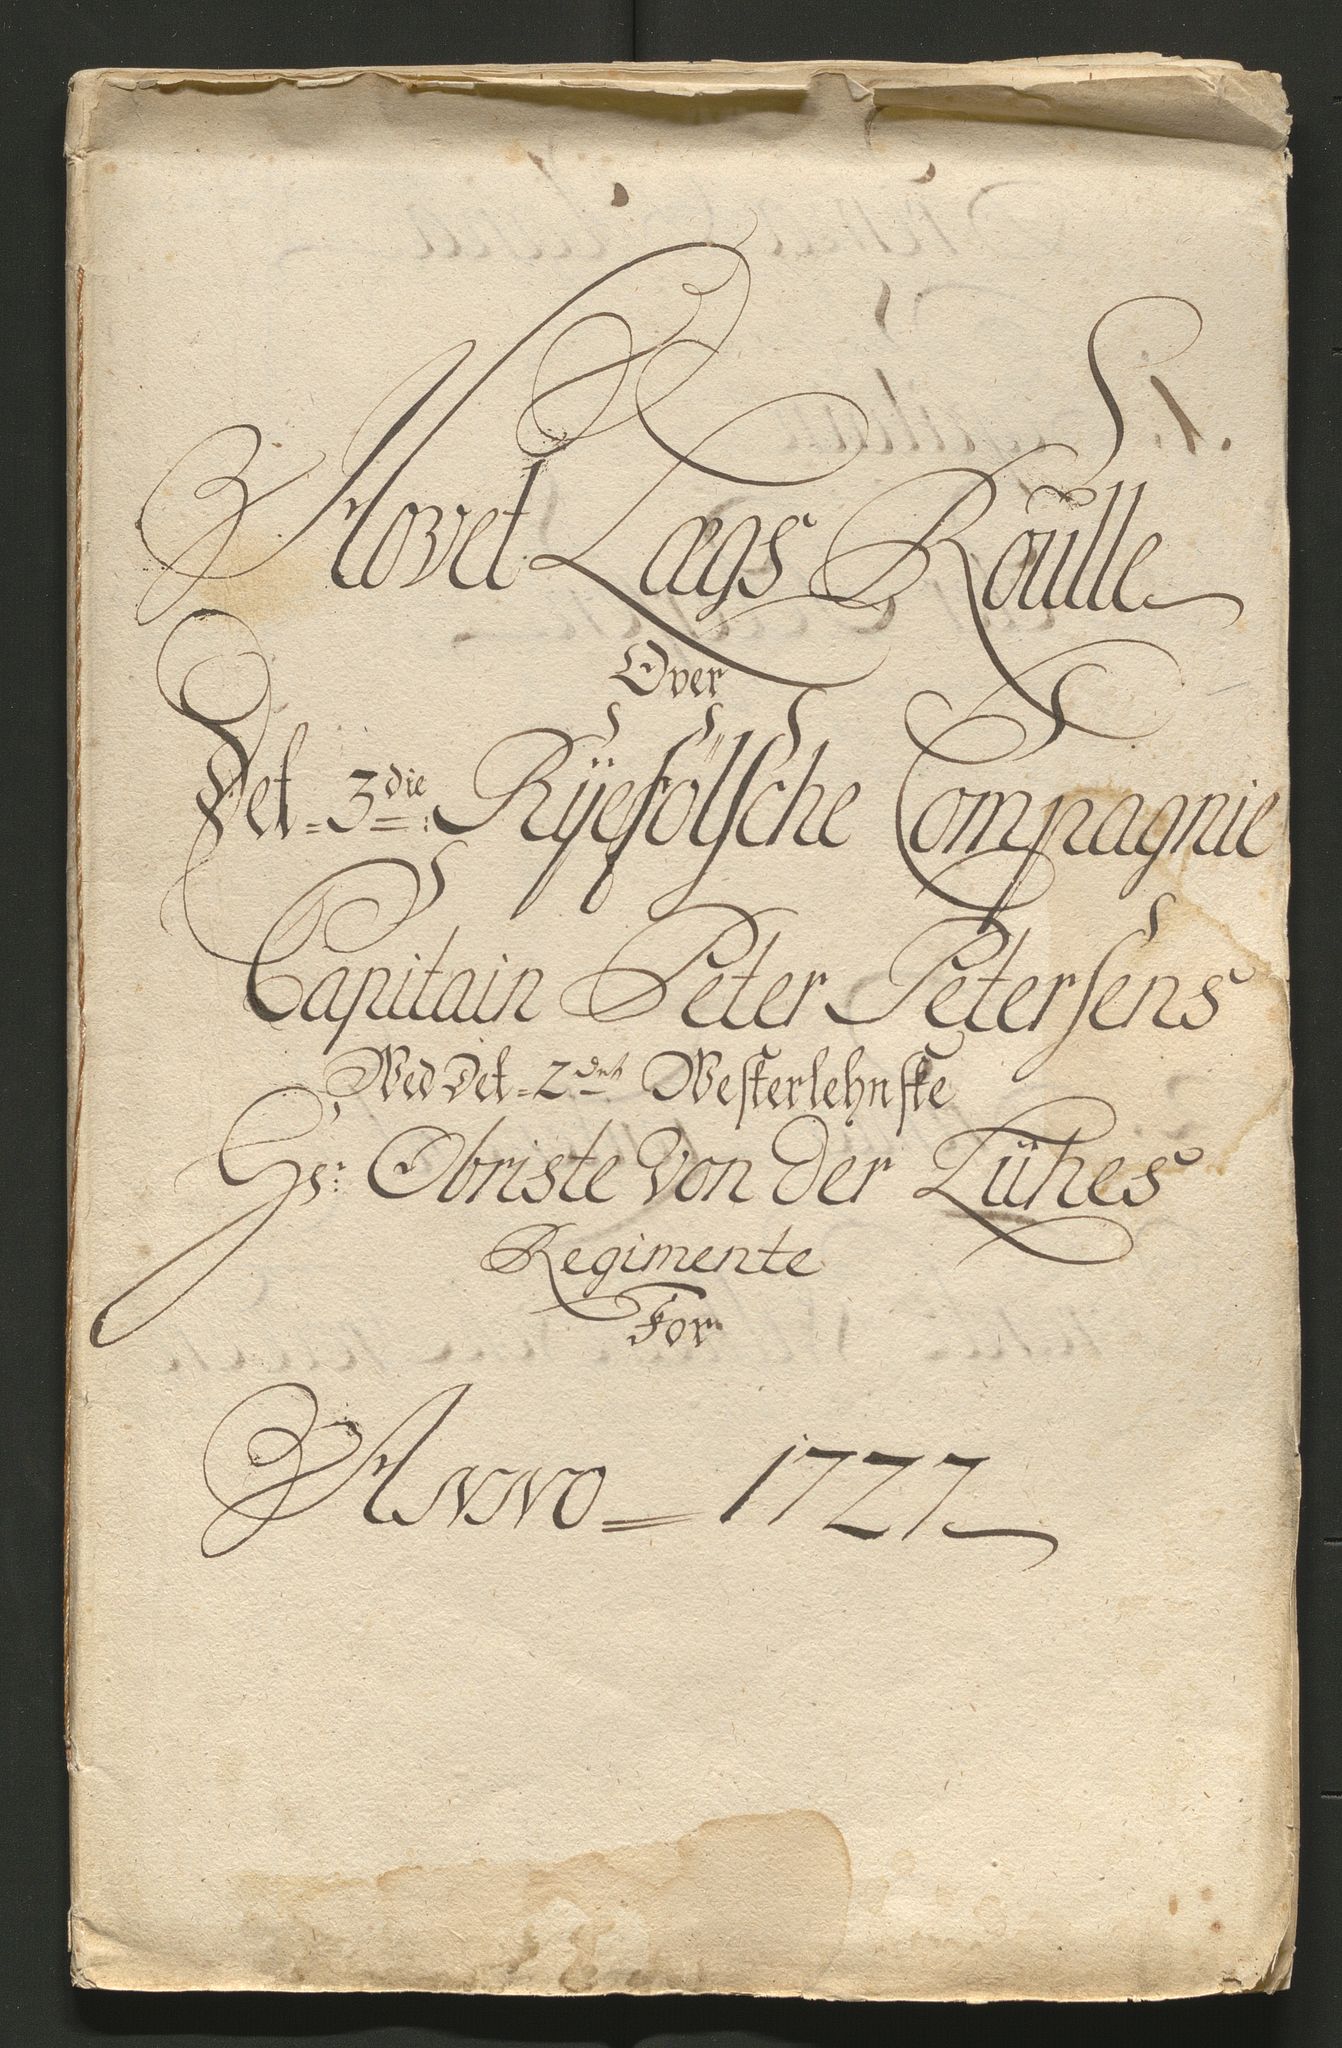 Hovet Lægs Roulle
Over
Det 3die: Rÿefölsche Compagnie
Capitain Peter Petersens
Wed Det 2det Westerlehnske
Hs: Obriste Von der Lühes
Regimente
For
Anno 1727